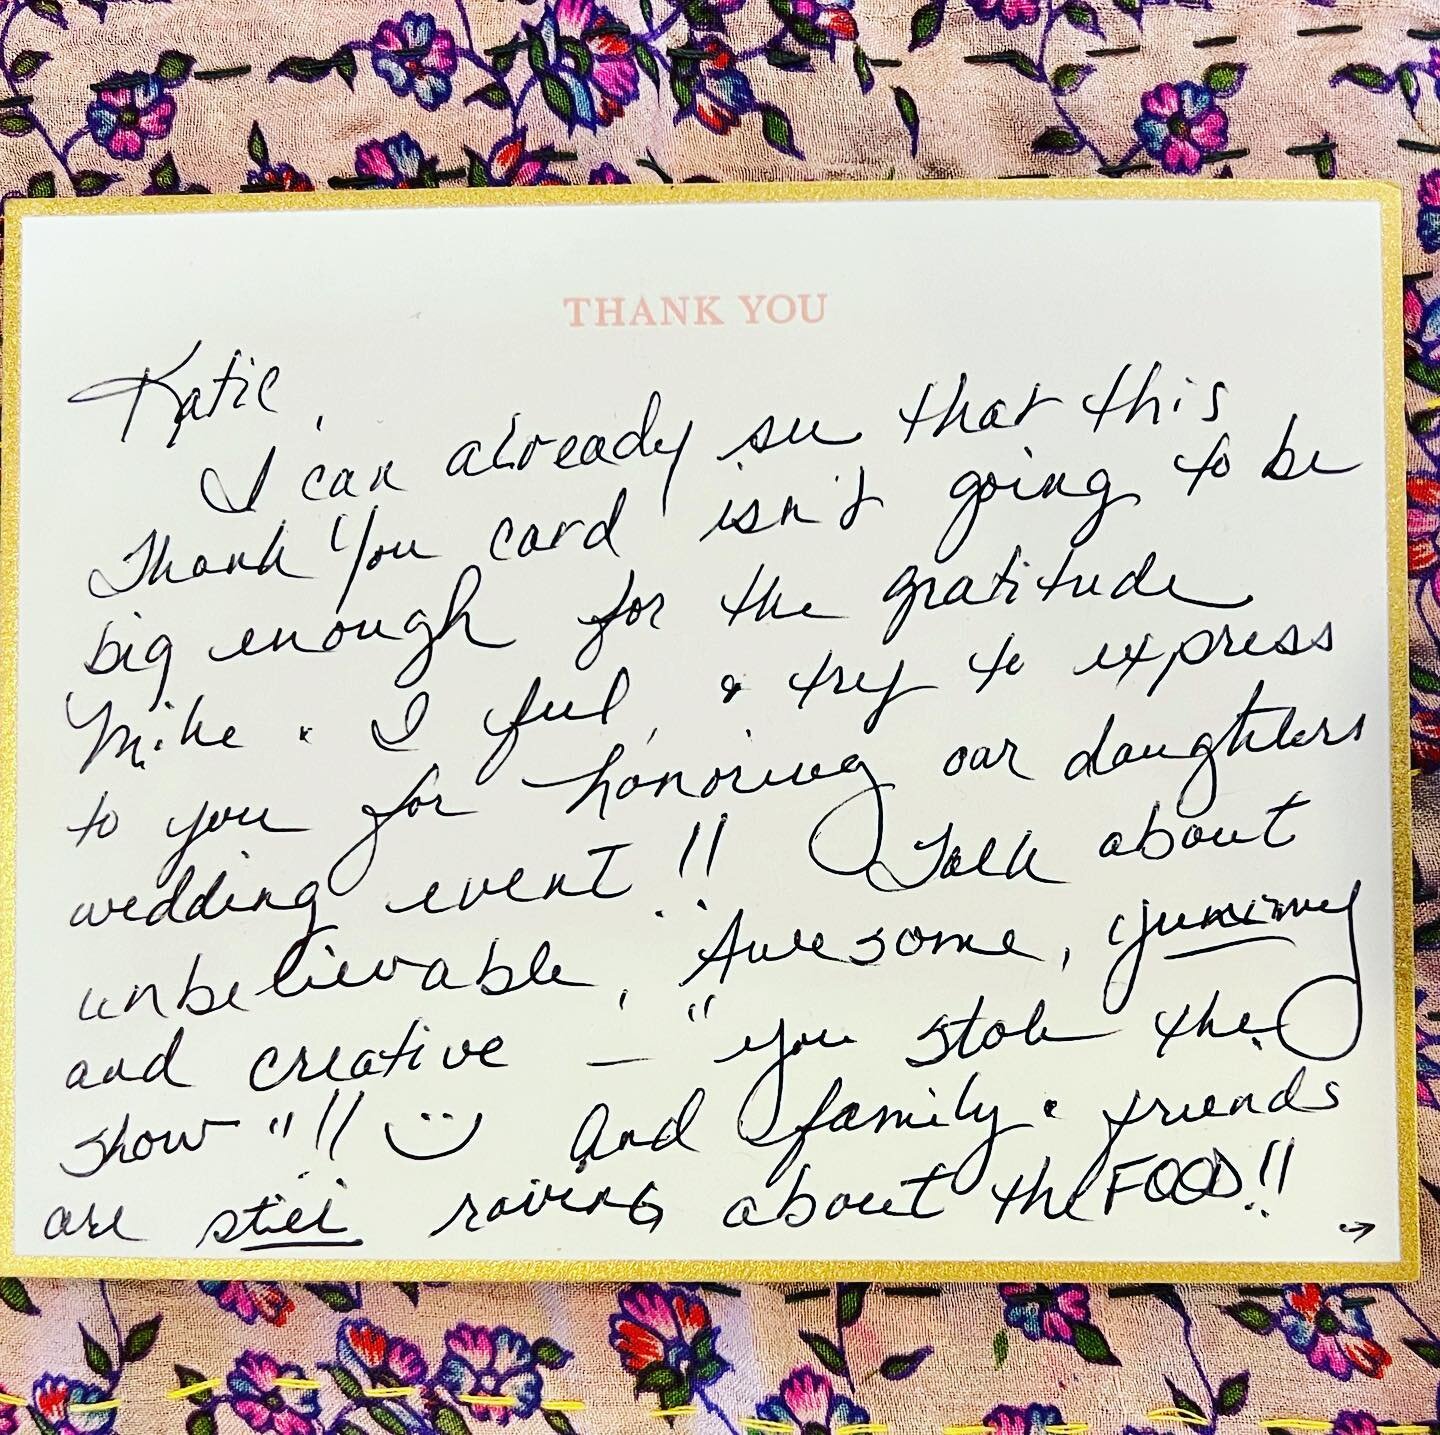 THANK YOU
Katie,
I can already see that this
Thank You card isn't going to be
big enough for the gratitude
Mike & I feel, & try to express
to you for honoring our daughters
wedding event!! Talk about
unbelievable, Awesome, yummy
and creative — "you stole the
show"!! :) And family & friends
are still raving about the FOOD!!
→